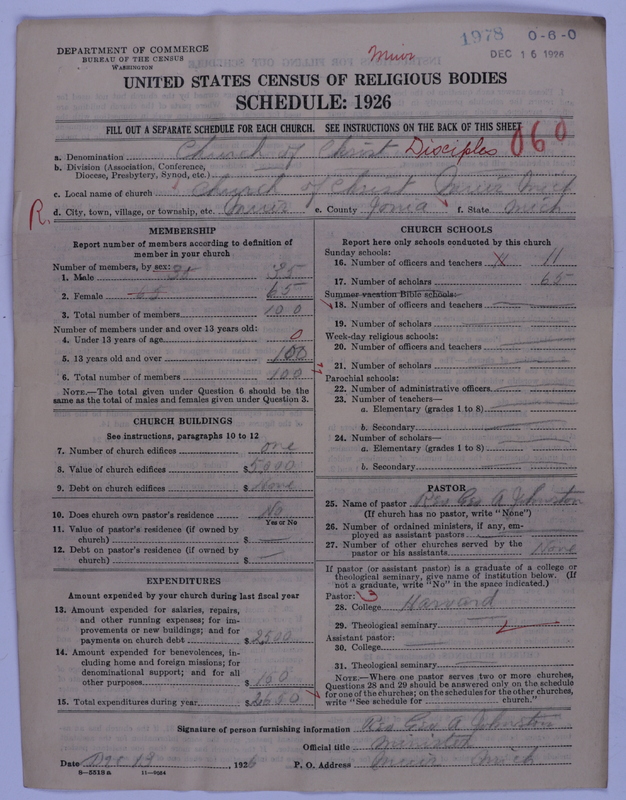 1978 0-6-0
DEC 16 1926
DEPARTMENT OF COMMERCE
BUREAU OF THE CENSUS
WASHINGTON
Muir
UNITED STATES CENSUS OF RELIGIOUS BODIES
SCHEDULE: 1926
FILL OUT A SEPARATE SCHEDULE FOR EACH CHURCH. SEE INSTRUCTIONS ON THE BACK OF THIS SHEET
060
a. Denomination Church of Christ Disciples
b. Division (Association, Conference, Diocese, Presbytery, Synod, etc.)
c. Local name of church Church of Christ Muir Mich
R. d. City, town, village, or township, etc. Muir e. County Ionia f. State Mich
MEMBERSHIP
Report number of members according to definition of
member in your church
Number of members, by sex:
1. Male 35 35
2. Female 65 65
3. Total number of members 100
Number of members under and over 13 years old:
4. Under 13 years of age 0
5. 13 years old and over 100
6. Total number of members 100
NOTE.—The total given under Question 6 should be the
same as the total of males and females given under Question 3.
CHURCH BUILDINGS
See instructions, paragraphs 10 to 12
7. Number of church edifices one
8. Value of church edifices $5,000
9. Debt on church edifices $None
10. Does church own pastor's residence No
Yes or No
11. Value of pastor's residence (if owned by
church) $
12. Debt on pastor's residence (if owned by
church) $
EXPENDITURES
Amount expended by your church during last fiscal year
13. Amount expended for salaries, repairs,
and other running expenses; for im-
provements or new buildings; and for
payments on church debt $2500
14. Amount expended for benevolences, in-
cluding home and foreign missions; for
denominational support; and for all
other purposes $160
15. Total expenditures during year $2660
CHURCH SCHOOLS
Report here only schools conducted by this church
Sunday schools:
16. Number of officers and teachers 11
17. Number of scholars 65
Summer vacation Bible schools:
18. Number of officers and teachers
19. Number of scholars
Week-day religious schools:
20. Number of officers and teachers
21. Number of scholars
Parochial schools:
22. Number of administrative officers
23. Number of teachers—
a. Elementary (grades 1 to 8)
b. Secondary
24. Number of scholars—
a. Elementary (grades 1 to 8)
b. Secondary
PASTOR
25. Name of pastor Rev Geo A Johnston
(If church has no pastor, write "None")
26. Number of ordained ministers, if any, em-
ployed as assistant pastors
27. Number of other churches served by the
pastor or his assistants None
If pastor (or assistant pastor) is a graduate of a college or
theological seminary, give name of institution below. (If
not a graduate, write "No" in the space indicated.)
Pastor: 3
28. College Harvard
29. Theological seminary
Assistant pastor:
30. College
31. Theological seminary
NOTE.—Where one pastor serves two or more churches,
Questions 28 and 29 should be answered only on the schedule
for one of the churches; on the schedules for the other churches,
write "See schedule for church."
Signature of person furnishing information Rev Geo A Johnston
Official title Minister
Date Dec 13, 1926 P. O. Address Muir Mich
8-5513a 11-9054